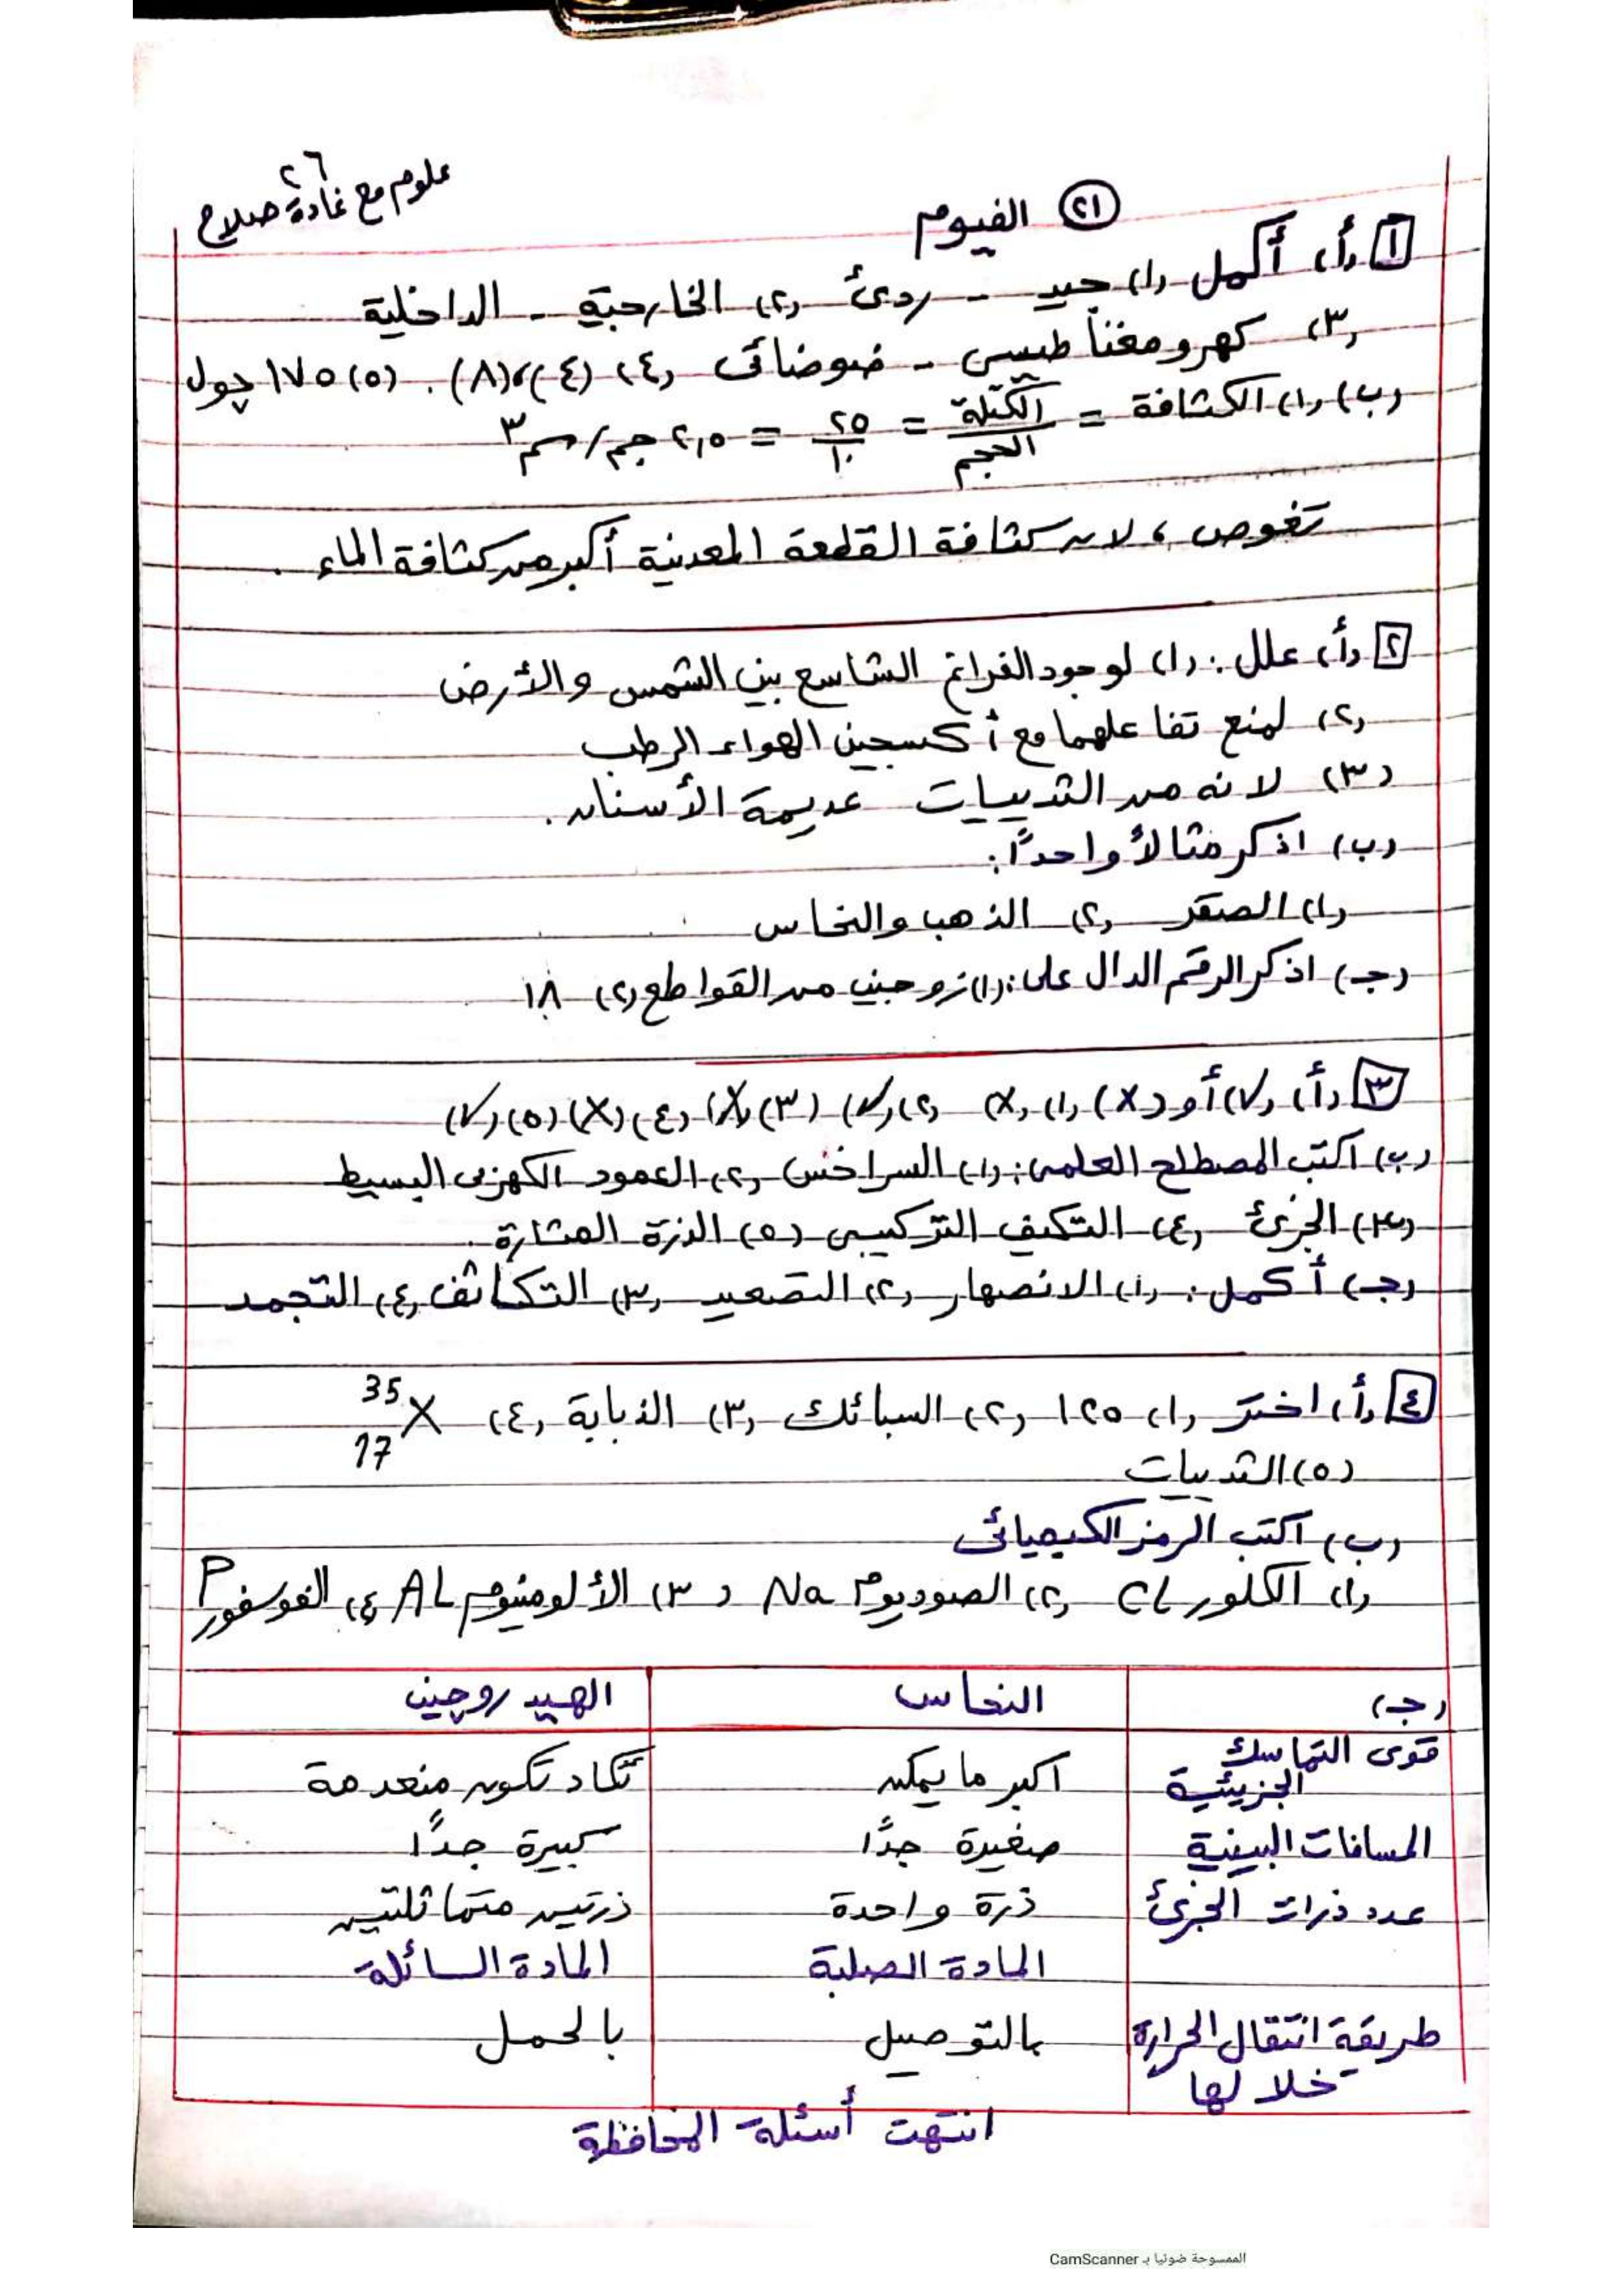 علوم مع غادة صلاح
٢٦
(٢١) الفيوم
[١] (أ) أكمل (١) جيد - ردئ (٢) الخارجية - الداخلية
(٣) كهرومغناطيسى - ضوضائى (٤) (٤)، (٨). (٥) ١٧٥ چول
(ب) (١) الكثافة = الكتلة / الحجم = ٢٥ / ١٠ = ٢,٥ جم/سم٣
تغوص، لان كثافة القطعة المعدنية أكبر من كثافة الماء.
[٢] (أ) علل: (١) لوجود الفراغ الشاسع بين الشمس والأرض
(٢) لمنع تفاعلهما مع أكسجين الهواء الرطب
(٣) لانه من الثدييات عديمة الأسنان.
(ب) اذكر مثالاً واحداً:
(١) الصقر (٢) الذهب والنحاس
(جـ) اذكر الرقم الدال على: (١) زوجين من القواطع (٢) ١٨
[٣] (أ) (√) أو (X) (١) (X) (٢) (√) (٣) (X) (٤) (X) (٥) (√)
(ب) اكتب المصطلح العلمى: (١) السراخس (٢) العمود الكهربى البسيط
(٣) الجزئ (٤) التكيف التركيبى (٥) الذرة المثارة.
(جـ) أكمل: (١) الانصهار (٢) التصعيد (٣) التكاثف (٤) التجمد
[٤] (أ) اختر (١) ١٢٥ (٢) السبائك (٣) الذبابة (٤) 35 17 X
(٥) الثدييات
(ب) اكتب الرمز الكيميائى
(١) الكلور Cl (٢) الصوديوم Na (٣) الألومنيوم AL (٤) الفوسفور P
(جـ) النحاس الهيدروچين
قوى التماسك الجزيئية اكبر ما يمكن تكاد تكون منعدمة
المسافات البينية صغيرة جدًا كبيرة جدًا
عدد ذرات الجزئ ذرة واحدة ذرتين متماثلتين
المادة الصلبة المادة السائلة
طريقة انتقال الحرارة بالتوصيل بالحمل
خلالها
انتهت أسئلة المحافظة
الممسوحة ضوئيا بـ CamScanner